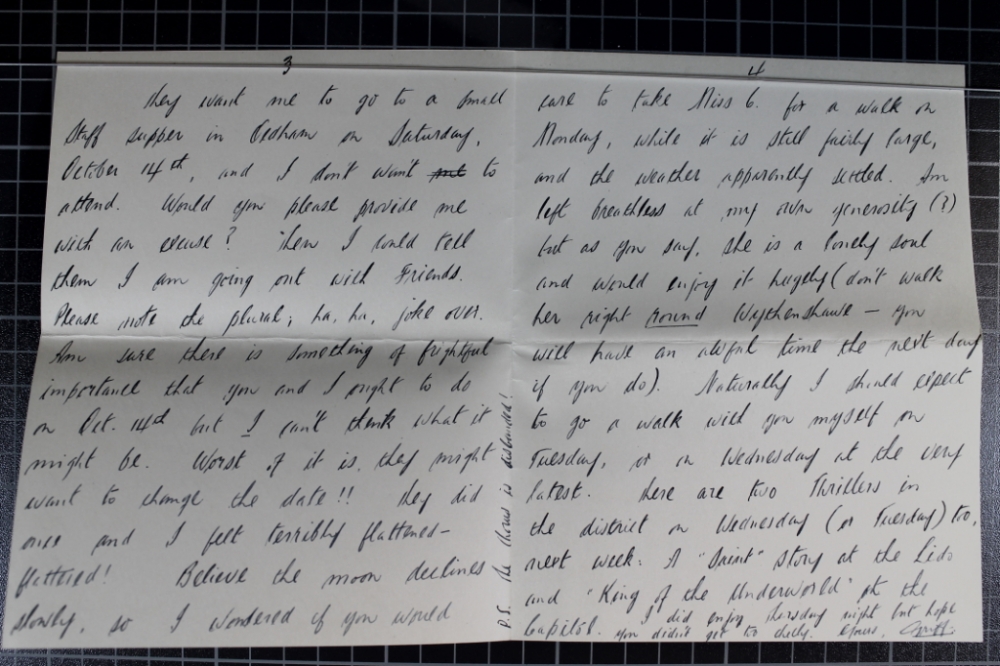 3
They want me to go to a small
Staff supper in Oldham on Saturday,
October 14th, and I don't want me to
attend. Would you please provide me
with an excuse? Then I could tell
them I am going out with Friends.
Please note the plural; ha, ha, joke over.
Am sure there is something of frightful
importance that you and I ought to do
on Oct. 14th but I can't think what it
might be. Worst of it is, they might
want to change the date!! They did
once and I felt terribly flattened-
flattered! Believe the moon declines
slowly, so I wondered if you would
P.S. The chorus is disbanded!
4
care to take Miss G. for a walk on
Monday, while it is still fairly large,
and the weather apparently settled. Am
left breathless at my own generosity (?)
but as you say, she is a lonely soul
and would enjoy it hugely (don't walk
her right round Wythenshawe - you
will have an awful time the next day
if you do). Naturally I should expect
to go a walk with you myself on
Tuesday, or on Wednesday at the very
latest. There are two Thrillers in
the district on Wednesday (or Tuesday) too,
next week. A "Saint" story at the Lido
and "King of the Underworld" at the
Capitol. I did enjoy Thursday night but hope
you didn't get too chilly. Yours,